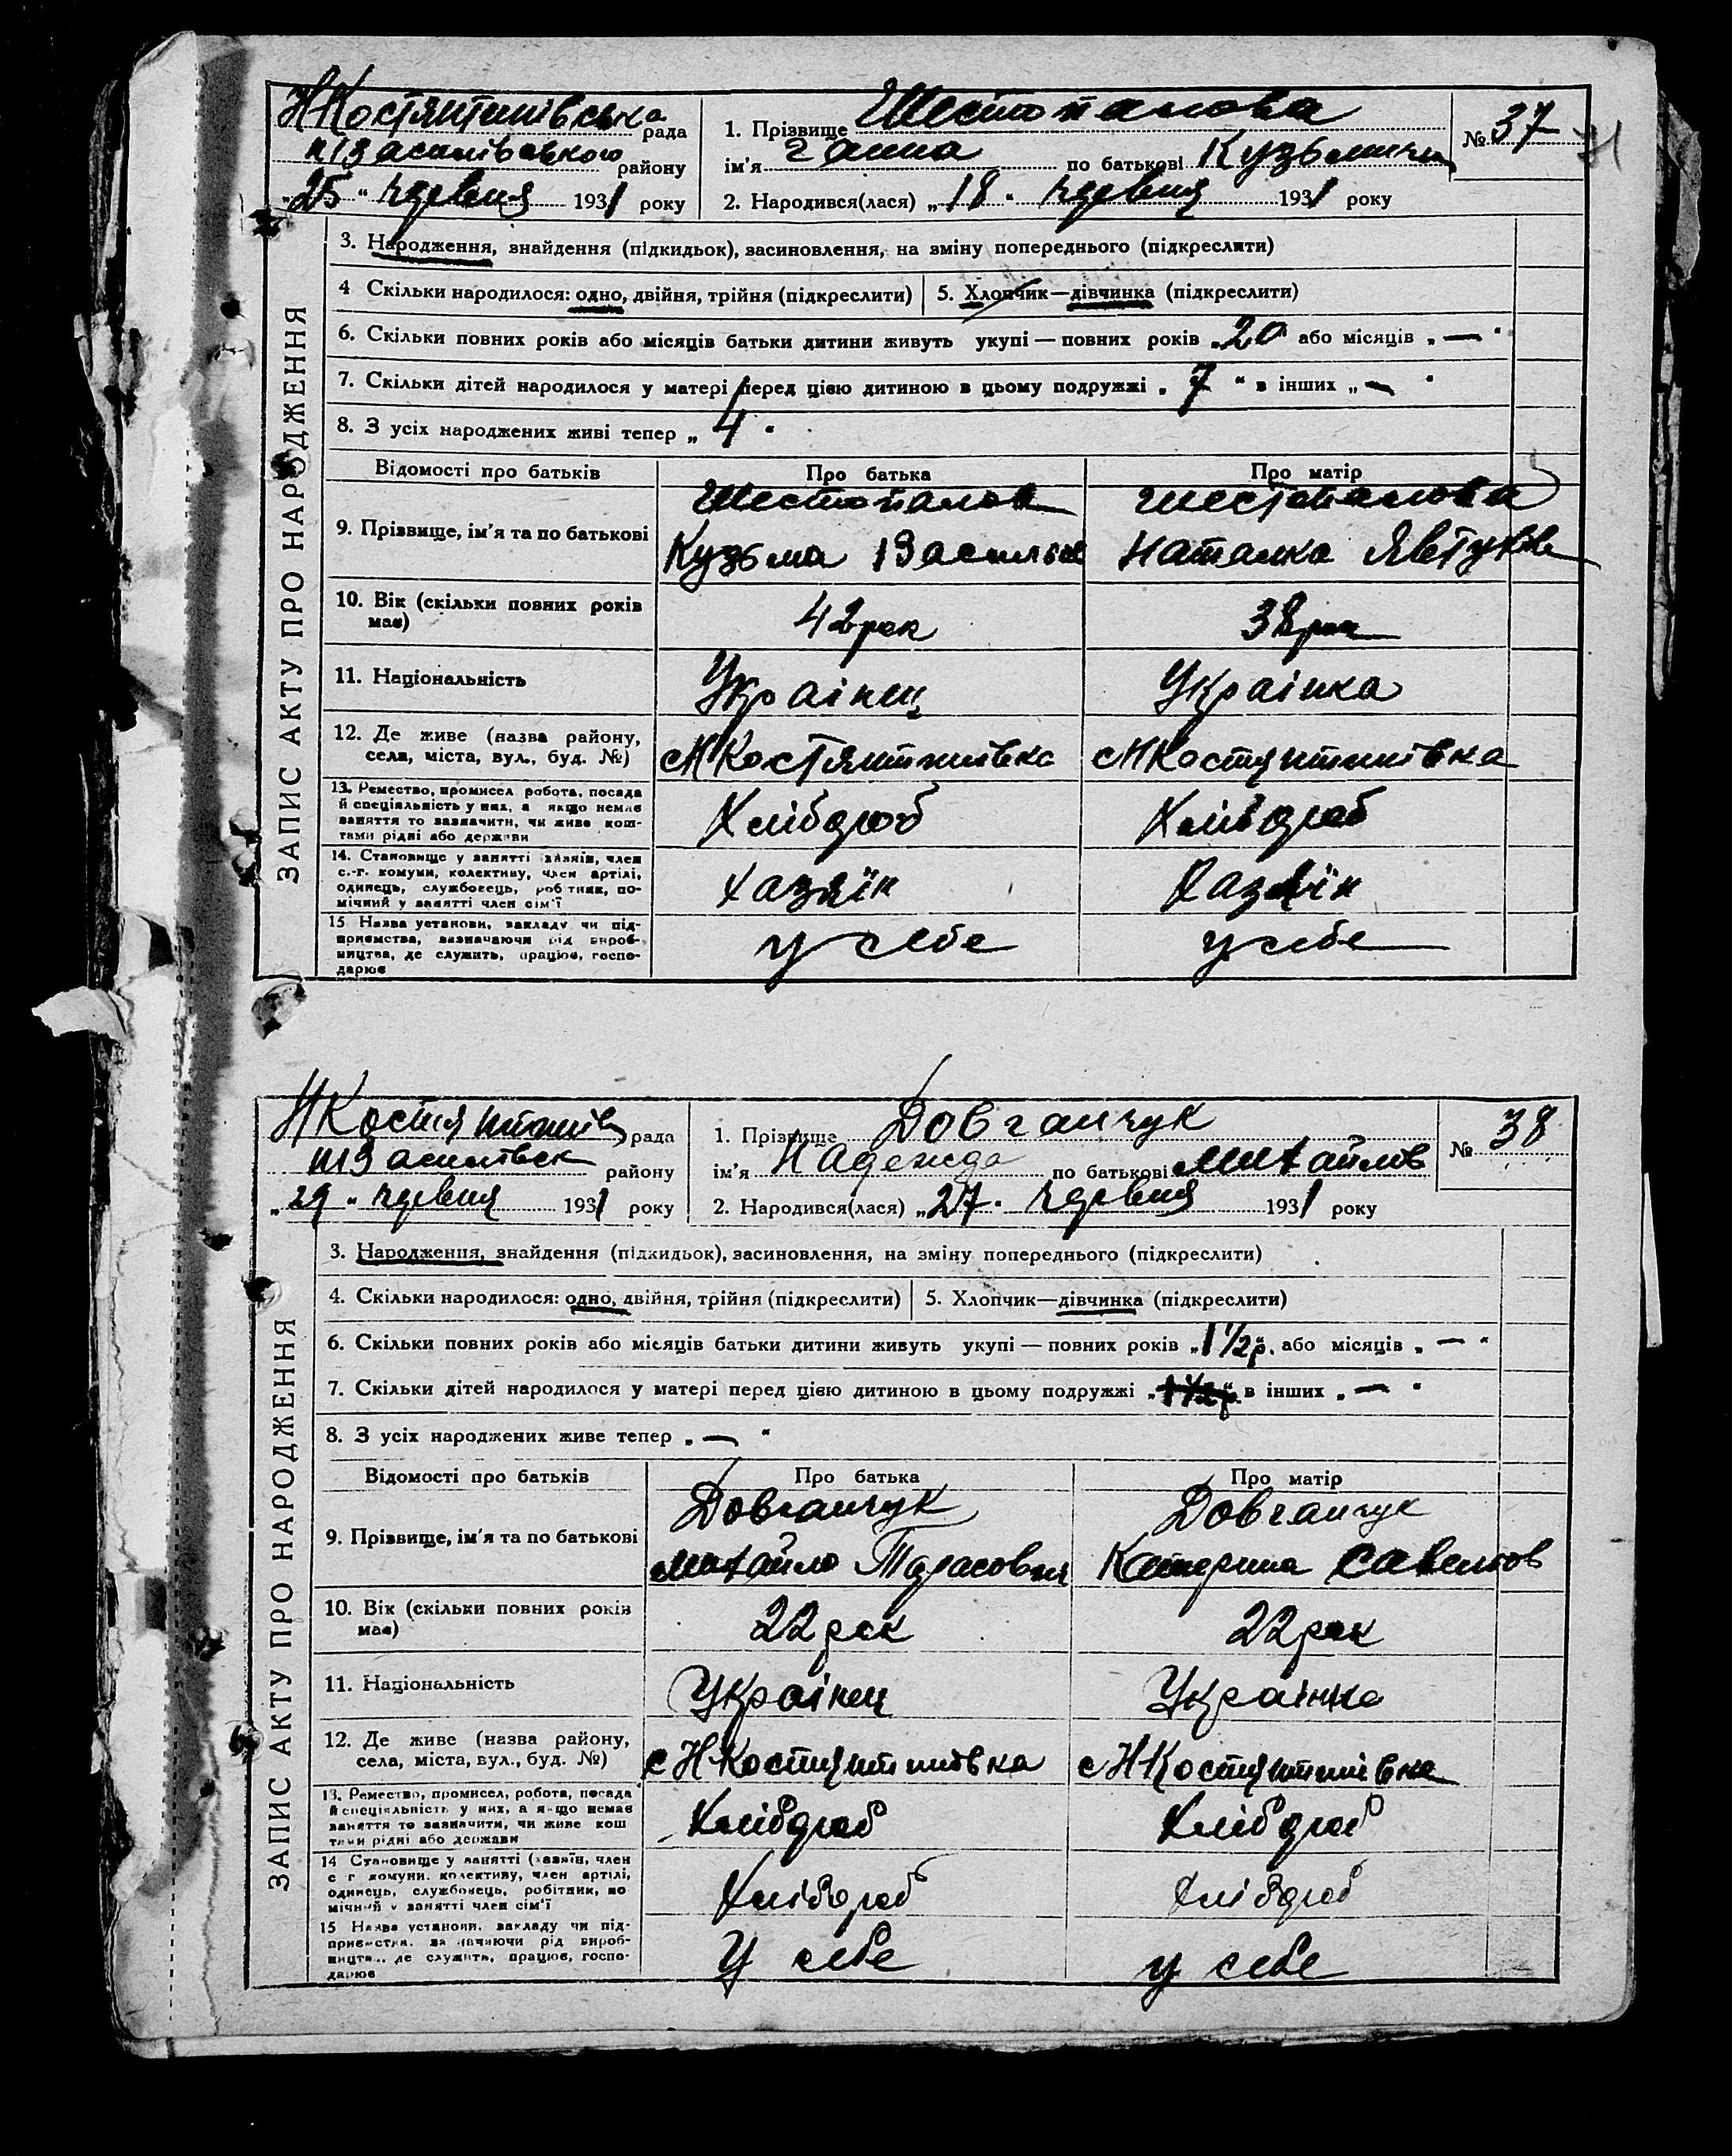 ЗАПИС АКТУ ПРО НАРОДЖЕННЯ
Н Костянтинівська рада
районy
"25" червня 1931 року
1. Прізвище Шестопалова
ім'я Ганна по батькові Кузьмична
2. Народився(лася) "18" червня 1931 року
№ 37
3. Народження, знайдення (підкидьок), засиновлення, на зміну попереднього (підкреслити)
4 Скільки народилося: одно, двійня, трійня (підкреслити)
5. Хлопчик—дівчинка (підкреслити)
6. Скільки повних років або місяців батьки дитини живуть укупі — повних років „20" або місяців „—"
7. Скільки дітей народилося у матері перед цією дитиною в цьому подружжі „7" в інших „—"
8. З усіх народжених живі тепер „4"
Відомості про батьків Про батька Про матір
9. Прізвище, ім'я та по батькові
Шестопалов
Кузьма Васильов
Шестопалова
Наталка Явтухов
10. Вік (скільки повних років має)
42 рок
38 рок
11. Національність
Українец
Українка
12. Де живе (назва району,
села, міста, вул., буд. №)
с Н Костянтинівка
с Н Костянтинівка
13. Ремество, промисел робота, посада
й спеціальність у них, а якщо немає
заняття то зазначити, чи живе кош-
тами рідні або держави
Хлібороб
Хлібороб
14. Становище у занятті (хазяїн, член
с.-г. комуни, колективу, член артілі,
одинець, службовець, робітник, по-
мічний у занятті член сім'ї
Хазяїн
Хазяїн
15 Назва установи, закладу чи під-
приємства, зазначаючи рід вироб-
ництва, де служить, працює, госпо-
дарює
у себе
у себе
ЗАПИС АКТУ ПРО НАРОДЖЕННЯ
Н Костянтинів рада
району
„29" червня 1931 року
1. Прізвище Довганчук
ім'я Надежда по батькові Михайлов
2. Народився(лася) „27" червня 1931 року
№ 38
3. Народження, знайдення (підкидьок), засиновлення, на зміну попереднього (підкреслити)
4. Скільки народилося: одно, двійня, трійня (підкреслити)
5. Хлопчик—дівчинка (підкреслити)
6. Скільки повних років або місяців батьки дитини живуть укупі — повних років „1 1/2 р." або місяців „—"
7. Скільки дітей народилося у матері перед цією дитиною в цьому подружжі „1 1/2 р." в інших „—"
8. З усіх народжених живе тепер „—"
Відомості про батьків Про батька Про матір
9. Прізвище, ім'я та по батькові
Довганчук
Михайло Тарасович
Довганчук
Катерина Савелтов
10. Вік (скільки повних років має)
22 рок
22 рок
11. Національність
Українец
Українка
12. Де живе (назва району,
села, міста, вул., буд. №)
с Н Костянтинівка
с Н Костянтинівка
13. Ремество, промисел, робота, посада
й спеціяльність у них, а якщо немає
заняття то зазначити, чи живе кош
тами рідні або держави
Хлібороб
Хлібороб
14 Становище у занятті (хазяїн, член
с г комуни, колективу, член артілі,
одинець, службовець, робітник, по
мічний у занятті член сім'ї
Хлібороб
Хлібороб
15 Назва установи, закладу чи під-
приємства, зазначаючи рід вироб-
ництва, де служить, працює, госпо-
дарює
У себе
у себе